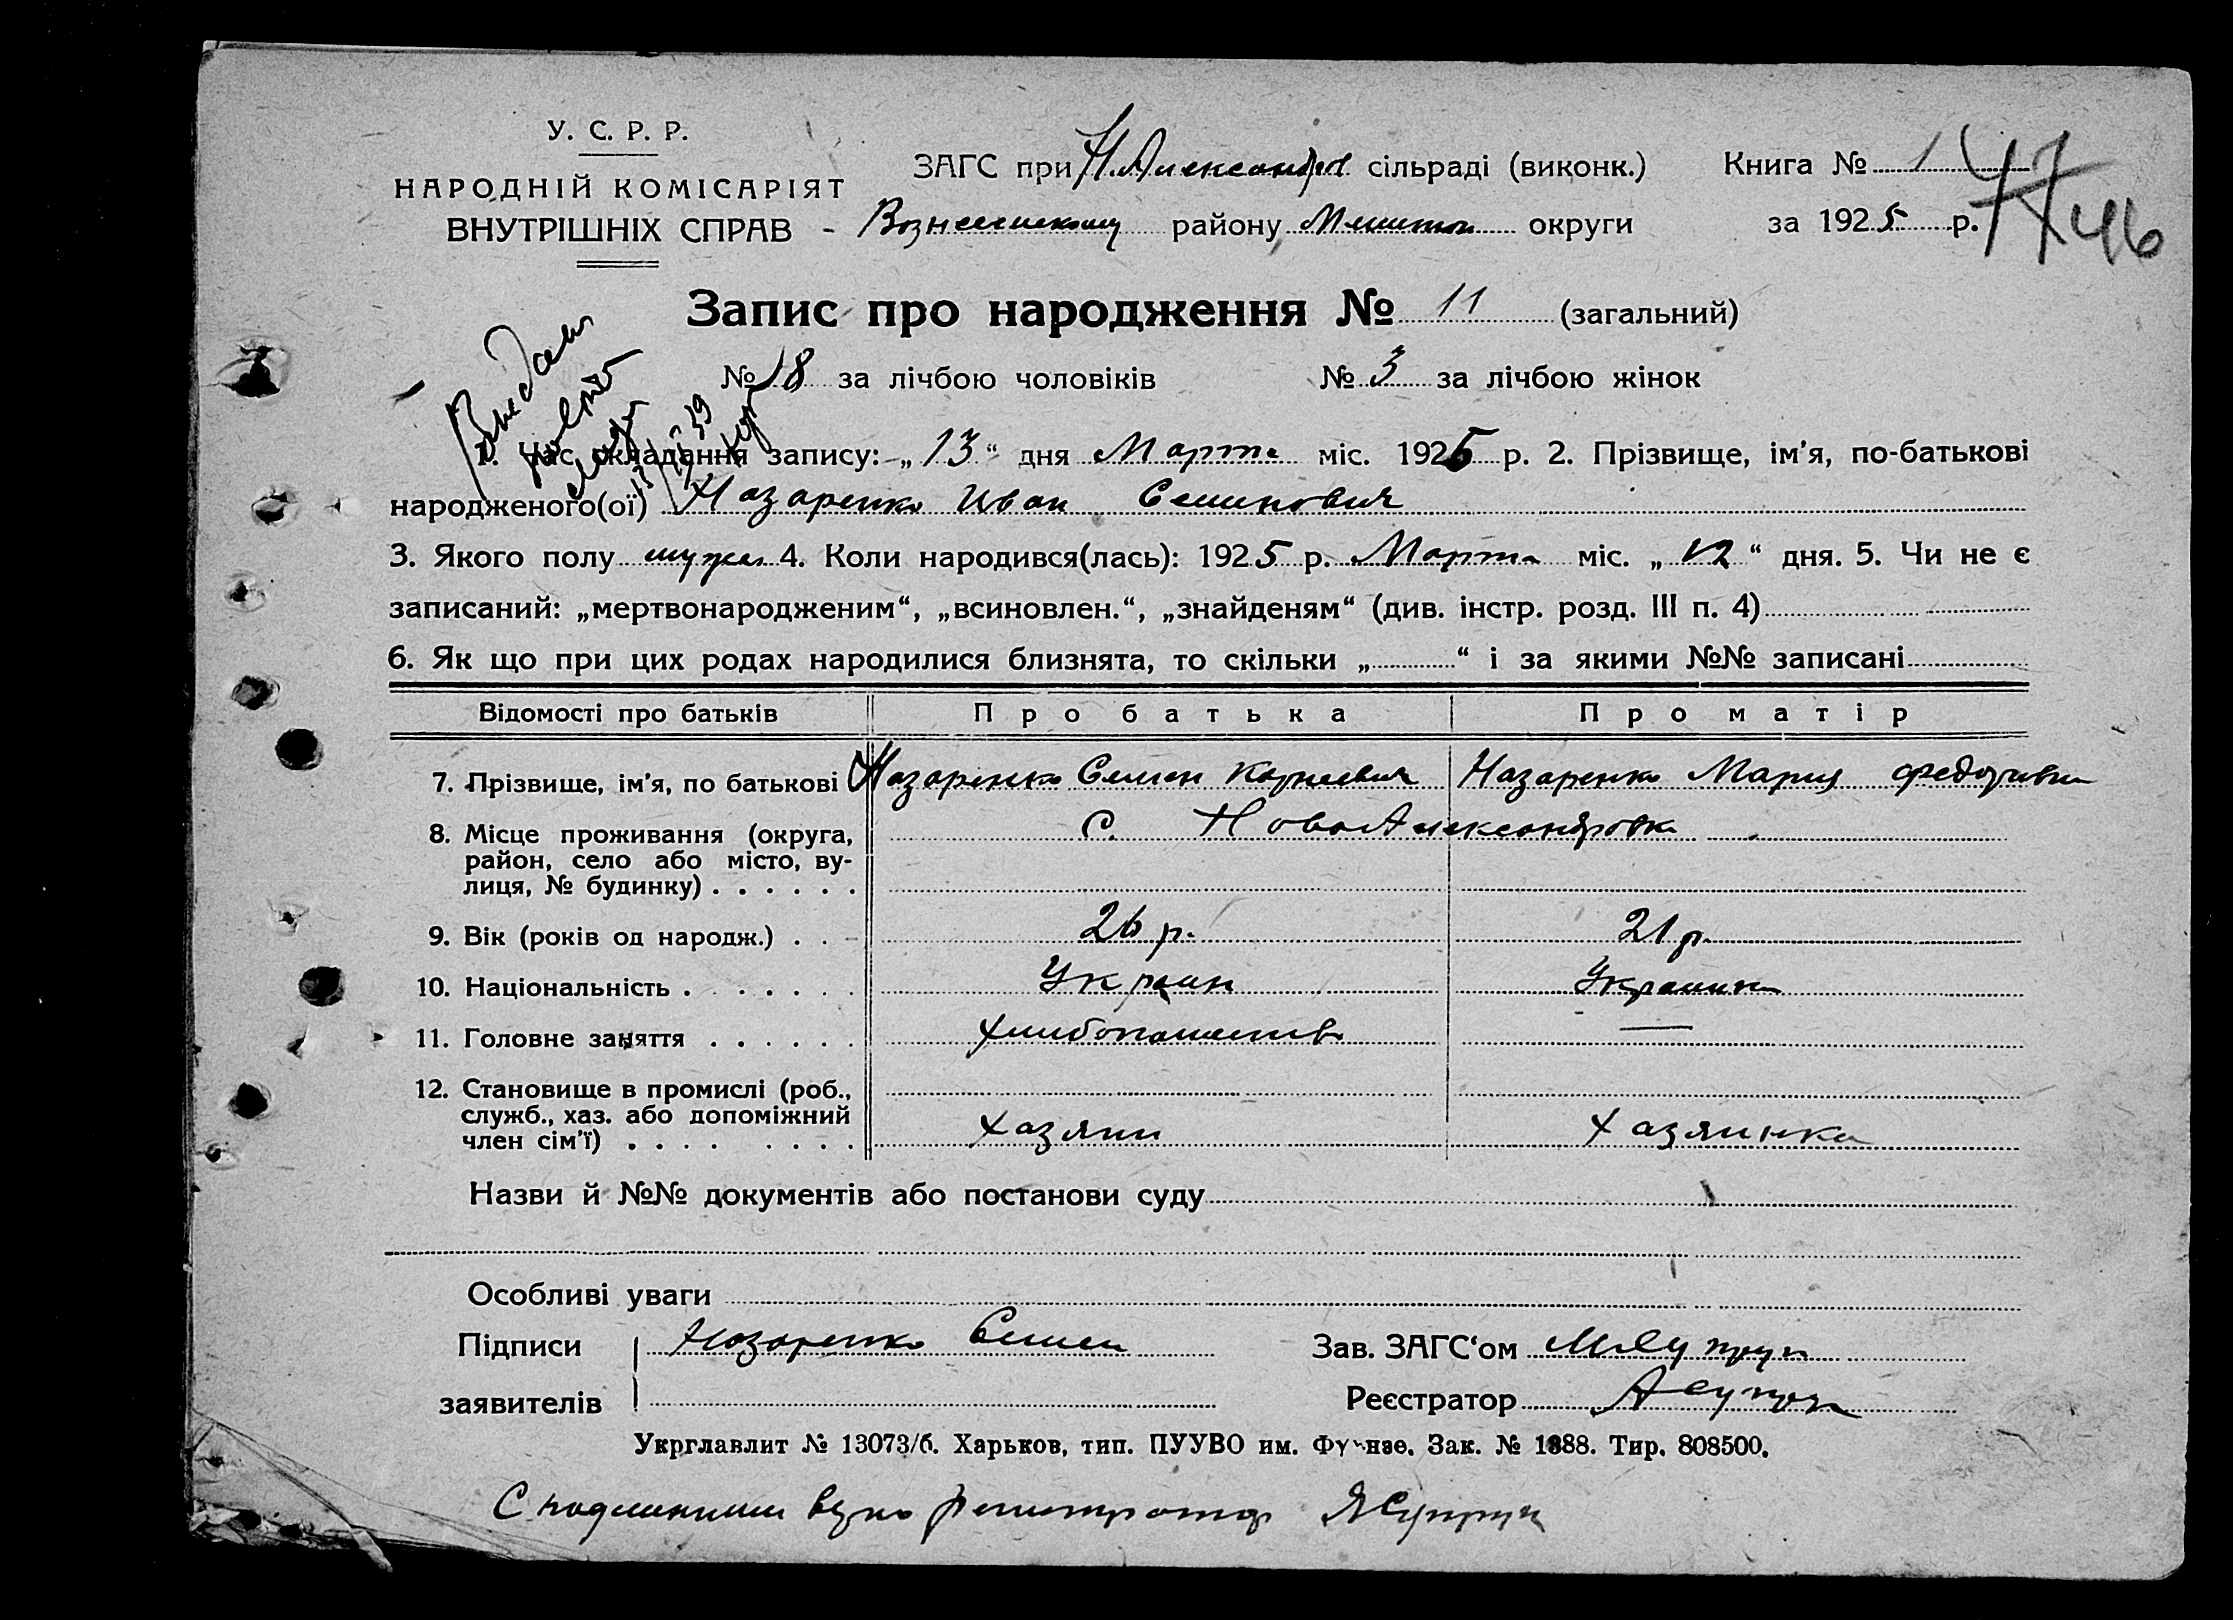 У. С. Р. Р.
НАРОДНІЙ КОМІСАРІЯТ
ВНУТРІШНІХ СПРАВ
ЗАГС при Н.Александров сільраді (виконк.) Книга № 1
району округи за 1925 р.
46
Запис про народження № 11 (загальний)
№ 8 за лічбою чоловіків № 3 за лічбою жінок
1. Час складання запису: „13“ дня Марта міс. 1925 р. 2. Прізвище, ім'я, по-батькові
народженого(ої) Назаренко Иван Семенович
3. Якого полу муж 4. Коли народився(лась): 1925 р. Марта міс. „12“ дня. 5. Чи не є
записаний: „мертвонародженим“, „всиновлен.“, „знайденям“ (див. інстр. розд. III п. 4)
6. Як що при цих родах народилися близнята, то скільки „ “ і за якими №№ записані
Відомості про батьків Про батька Про матір
7. Прізвище, ім'я, по батькові Назаренко Семен Корнеевич Назаренко Мария
8. Місце проживання (округа, район, село або місто, вулиця, № будинку) С. НовоАлександровка
9. Вік (років од народж.) 26 р. 21 р.
10. Національність Украин Украинка
11. Головне заняття —
12. Становище в промислі (роб., служб., хаз. або допоміжний член сім'ї) Хазяин Хазяинка
Назви й №№ документів або постанови суду
Особливі уваги
Підписи Назаренко Семен Зав. ЗАГС‘ом
заявителів Реєстратор
Укрглавлит № 13073/б. Харьков, тип. ПУУВО им. Фрунзе. Зак. № 1888. Тир. 808500.
С подлинным верно